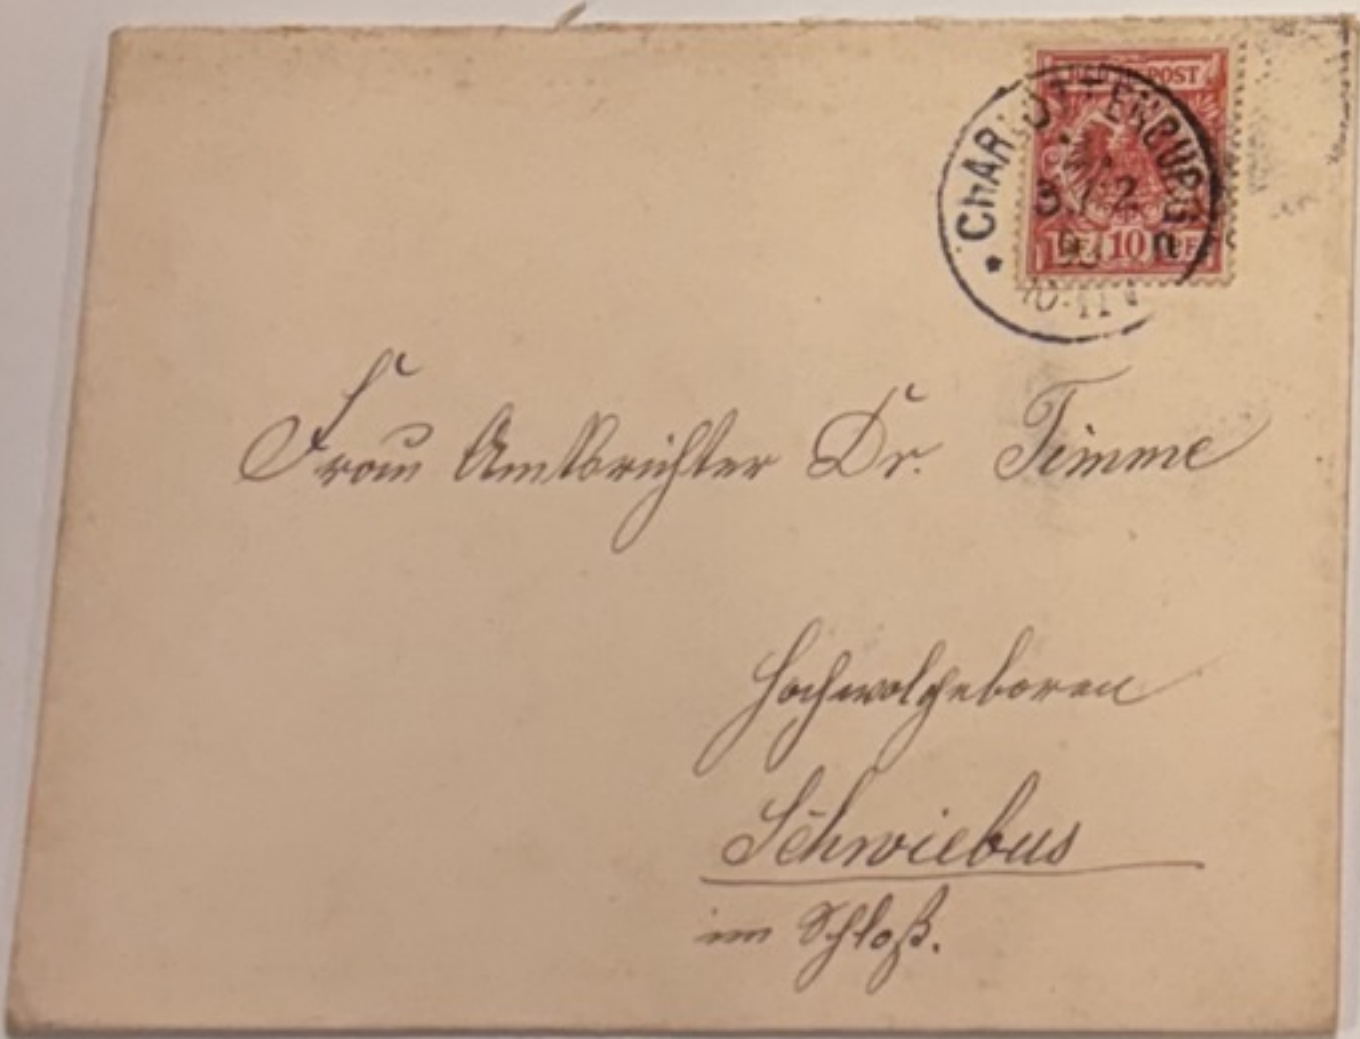 REICHSPOST
CHARLOTTENBURG
PF 10 PF
10-11 N
Frau Amtsrichter Dr. Timme
Hochwolgeboren
Schwiebus
im Schloß.